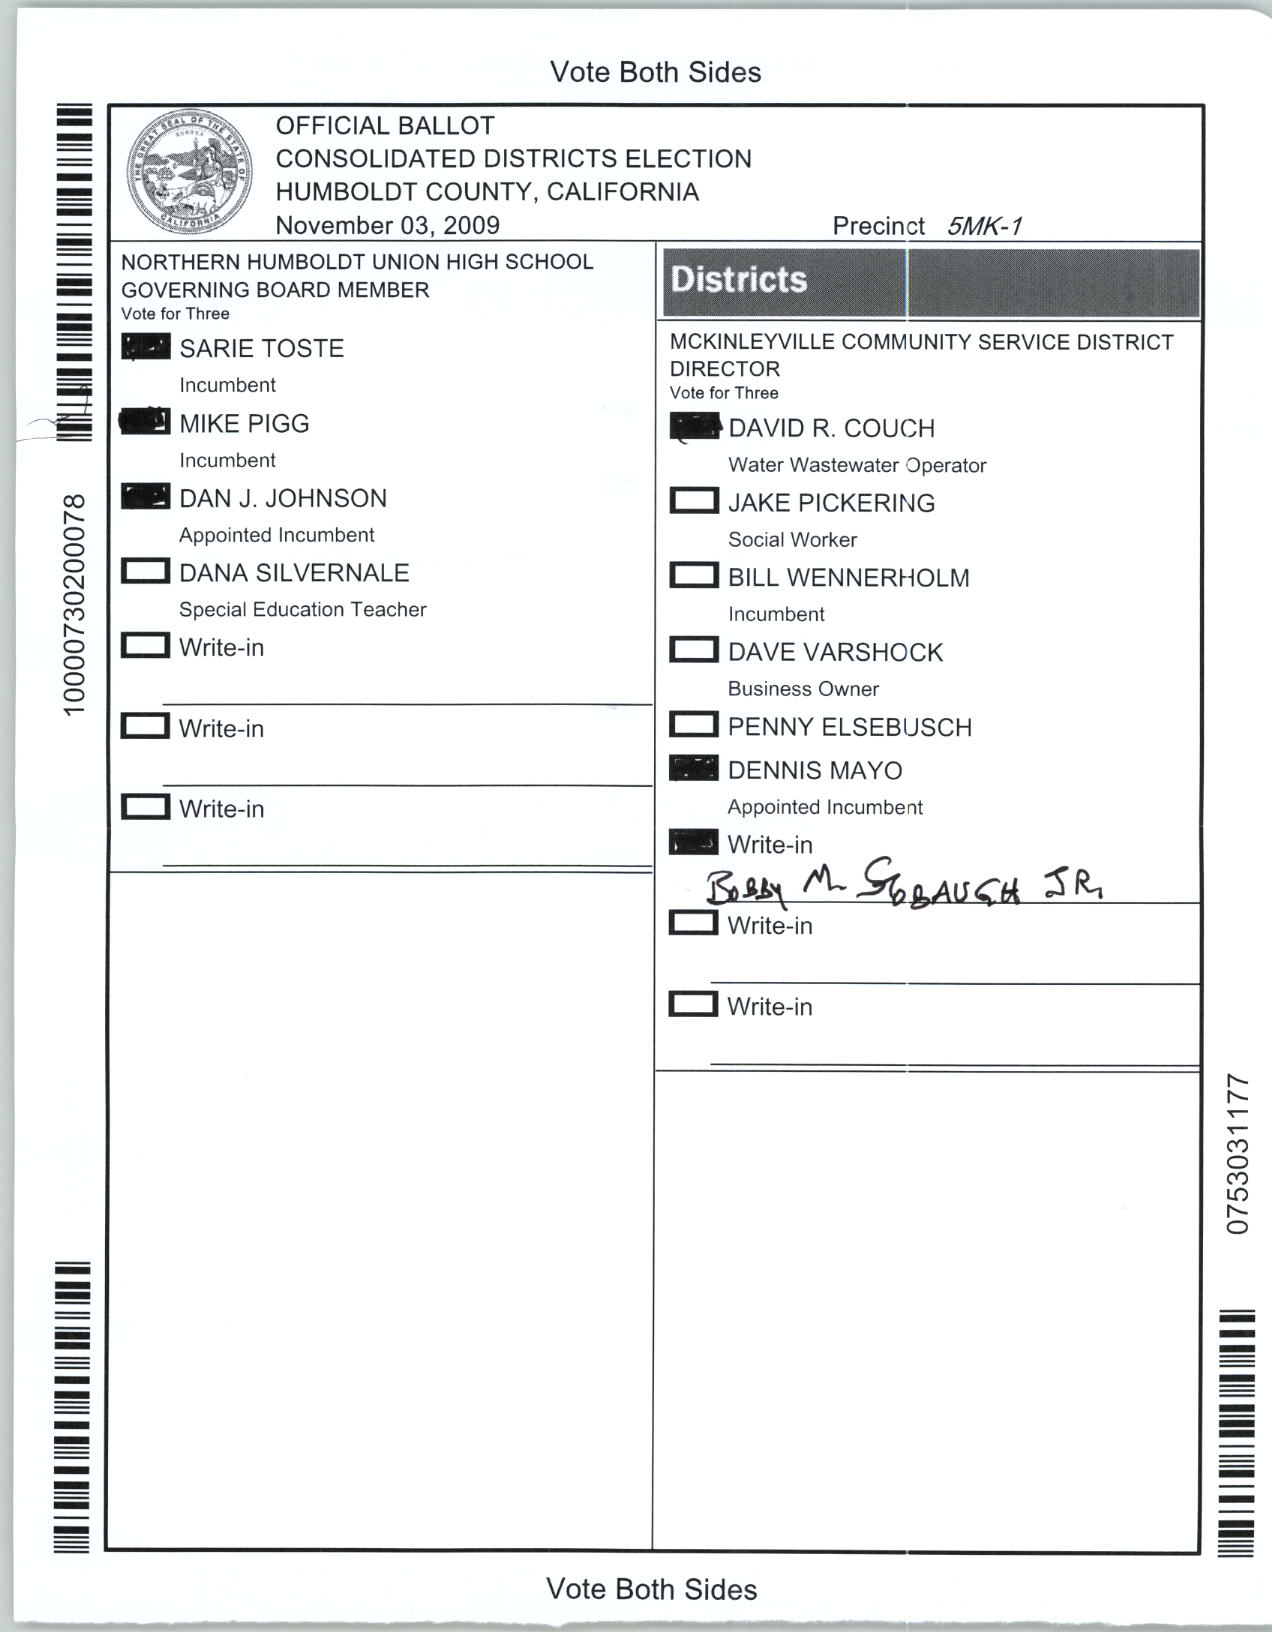 Vote Both Sides
THE GREAT SEAL OF THE STATE OF CALIFORNIA
EUREKA
OFFICIAL BALLOT
CONSOLIDATED DISTRICTS ELECTION
HUMBOLDT COUNTY, CALIFORNIA
November 03, 2009
Precinct 5MK-1
NORTHERN HUMBOLDT UNION HIGH SCHOOL
GOVERNING BOARD MEMBER
Vote for Three
SARIE TOSTE
Incumbent
MIKE PIGG
Incumbent
DAN J. JOHNSON
Appointed Incumbent
DANA SILVERNALE
Special Education Teacher
Write-in
Write-in
Write-in
Districts
MCKINLEYVILLE COMMUNITY SERVICE DISTRICT
DIRECTOR
Vote for Three
DAVID R. COUCH
Water Wastewater Operator
JAKE PICKERING
Social Worker
BILL WENNERHOLM
Incumbent
DAVE VARSHOCK
Business Owner
PENNY ELSEBUSCH
DENNIS MAYO
Appointed Incumbent
Write-in
BOBBY M JR.
Write-in
Write-in
10000730200078
0753031177
Vote Both Sides